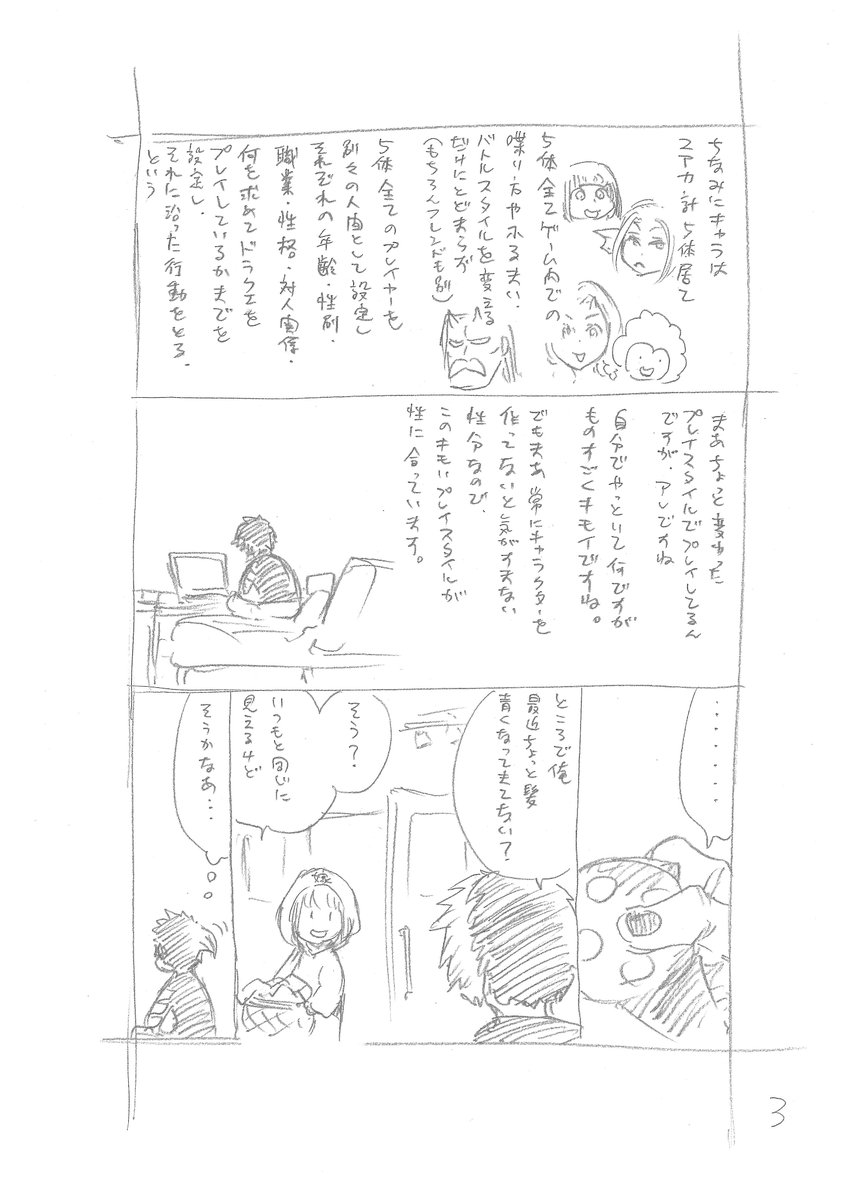 ちなみにキャラは
2アカ・計5体居て
5体全てゲーム内での
喋り方やふるまい、
バトルスタイルを変える
だけにとどまらず
(もちろんフレンドも別)
5体全てのプレイヤーを
別々の人間として設定し
それぞれの年齢・性別・
職業・性格・対人関係・
何を求めてドラクエを
プレイしているかまでを
設定し、
それに沿った行動をとる、
という
まあちょっと変わった
プレイスタイルでプレイしてるん
ですが、アレですね
自分でやっといて何ですが
ものすごくキモイですね。
でもまあ常にキャラクターを
作ってないと気がすまない
性分なので、
このキモいプレイスタイルが
性に合っています。
・・・・・・・
ところで俺
最近ちょっと髪
青くなってきてない?
そう?
いつもと同じに
見えるけど
嫁
そうかなあ・・・
3